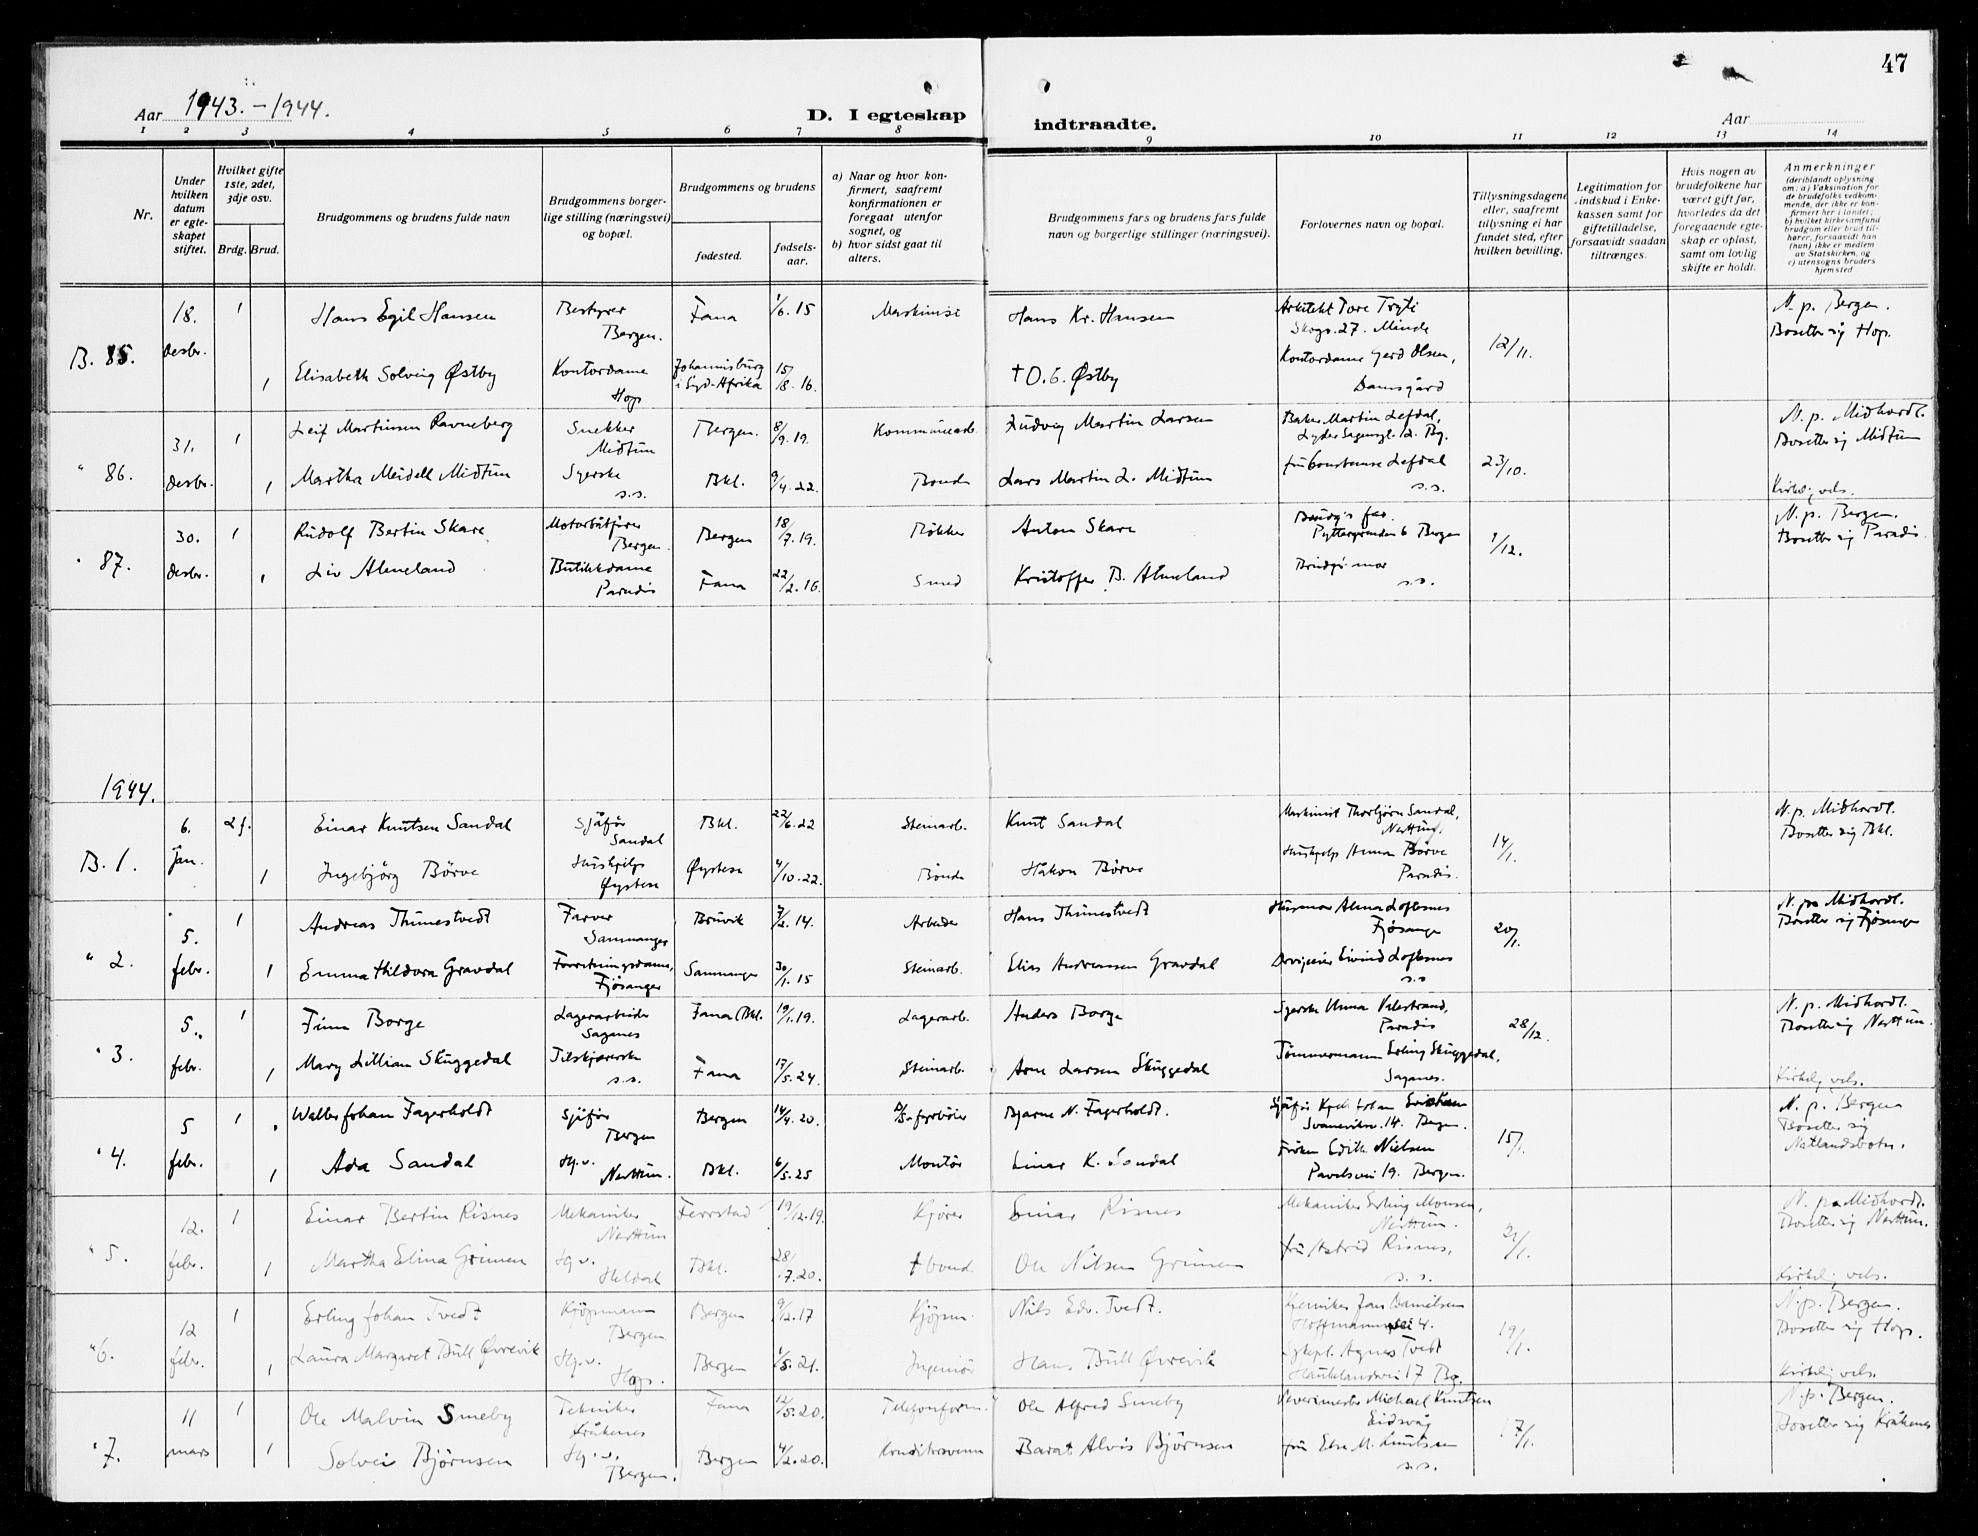 47
Aar 1943.-1944.
D. I egteskap indtraadte.
Aar
1 2 3 4 5 6 7 8 9 10 11 12 13 14
Nr.
Under hvilken datum er egteskapet stiftet.
Hvilket gifte 1ste, 2det, 3dje osv.
Brdg. Brud.
Brudgommens og brudens fulde navn
Brudgommens borgerlige stilling (næringsvei) og bopæl.
Brudgommens og brudens
fødested.
fødselsaar.
a) Naar og hvor konfirmert, saafremt konfirmationen er foregaat utenfor sognet, og
b) hvor sidst gaat til alters.
Brudgommens fars og brudens fars fulde navn og borgerlige stillinger (næringsvei).
Forlovernes navn og bopæl.
Tillysningsdagene eller, saafremt tillysning ei har fundet sted, efter hvilken bevilling.
Legitimation for indskud i Enkekassen samt for giftetilladelse, forsaavidt saadan tiltrænges.
Hvis nogen av brudefolkene har været gift før, hvorledes da det foregaaende egteskap er opløst, samt om lovlig skifte er holdt.
Anmerkninger
(deriblandt oplysning om: a) Vaksination for de brudefolks vedkommende, der ikke er konfirmert her i landet; b) hvilket kirkesamfund brudgom eller brud tilhører, forsaavidt han (hun) ikke er medlem av Statskirken, og c) utensogns bruders hjemsted
B. 85. 18. desbr. 1 Hans Egil Hansen Bestyrer Bergen. Fana 1/6.15 Maskinist Hans Kr. Hansen Arkitekt Tore Tryti Skogv. 27. Minde 12/11. N. p. Bergen. Bosetter sig Hop.
1 Elisabeth Solveig Østby Kontordame Hop Johannisburg i Syd-Afrika 15/8.16. † O. G. Østby Kontordame Gerd Olsen, Damsgård
" 86. 31. desbr. 1 Leif Martinsen Ravneberg Snekker Midtun Bergen. 8/9.19. Kommunearb. Ludvig Martin Larsen Baker Martin Lefdal, Lyder Sagensgt. 12. Bg. 23/10. N. p. Midhordl. Bosetter sig Midtun
1 Martha Meidell Midtun Syerske s.s. Bkl. 9/4.22. Bonde Lars Martin L. Midtun fru Constanse Lefdal s.s. Kirkelig vels.
" 87. 30. desbr. 1 Rudolf Bertin Skare Motorbåtfører Bergen. Bergen 18/7.19. Bøkker Anton Skare Brudg's far. Pyttergrenden 6 Bergen 9/12. N. p. Bergen. Bosetter sig Paradis.
1 Liv Almeland Butikkdame Paradis Fana 22/2.16. Smed Kristoffer B. Almeland Brudgs mor s.s.
1944.
B. 1. 6. jan. 2 g. Einar Knutsen Sandal Sjåfør Sandal Bkl. 22/6.22 Steinarb. Knut Sandal Maskinist Thorbjørn Sandal, Nesttun. 14/1. N. p. Midhordl. Bosetter sig Bkl.
1 Ingebjörg Børve Hushjelp Øystese Øystese 4/10.22. Bonde Håkon Børve Hushjelp Anna Børve Paradis.
" 2. 5. febr. 1 Andreas Thunestvedt Farver Samnanger Bruvik 7/2.14. Arbeider Hans Thunestvedt Husmor Alma Loftesnes Fjøsanger 20/1. N. p. Midhordl. Bosetter sig Fjøsanger
1 Emma Hildora Gravdal Forretningsdame, Fjøsanger Samnanger 30/1.15 Steinarb. Elias Andreassen Gravdal Eivind Loftesnes s.s
" 3. 5. febr. 1 Finn Borge Lagerarbeider Saganes Fana (Bkl. 19/1.19. Lagerarb. Anders Borge Syerske Anna Valestrand, Paradis 28/12. N. p. Midhordl. Bosetter sig Nesttun.
1 Mary Lillian Skuggedal Tilskjærerske s.s. Fana 17/5.24. Steinarb. Arne Larsen Skuggedal Tømmermann Erling Skuggedal, Saganes. Kirkelig vels.
" 4. 5 febr. 1 Walter Johan Fagerholdt Sjåfør Bergen Bergen 14/4.20. D/S-fyrbøter Bjarne N. Fagerholdt. Sjåfør Svaneviksv. 14. Bergen. 15/1. N. p. Bergen Bosetter sig Natlandsbotn.
1 Ada Sandal Hj. v. Nesttun. Bkl. 6/5.25 Montør Einar K. Sandal Frøken Edith Nielsen 19. Bergen.
" 5. 12. febr. 1 Einar Bertin Risnes Mekaniker Nesttun Ferrstad 19/12.19. Kjører Einar Risnes Mekaniker Erling Monsen, Nesttun. 2/1. N. p. Midhordl. Bosetter sig Nesttun.
1 Martha Elina Grimen Hj. v. Heldal Bkl. 28/7.20. † bond. Ole Nilsen Grimen fru Astrid Risnes, s. s. Kirkelig vels.
" 6. 12 febr. 1 Erling Johan Tvedt Kjøpmann Bergen Bergen 9/2.17 Kjøpm. Nils Edv. Tvedt. Kemiker Jan Danielsen Hoffmannsvei 4. 19/1. N. p. Bergen. Bosetter sig Hop.
1 Laura Margaret Bull Øvrevik Hj. v. Hop. Bergen 1/5.21. Ingeniør Hans Bull Øvrevik Agnes Tvedt Haukelandsvei 17 Bg. Kirkelig vels.
" 7. 11 mars 1 Ole Malvin Smeby Tekniker Kråkenes Fana 12/5.20. Telefonform. Ole Alfred Smeby Michael Knutsen Eidsvåg 17/1. N. p. Bergen. Bosetter sig Kråkenes
1 Solveis Bjørnsen Hj. v. Bergen. Bergen 4/2.20. Konditorsvenn Barat Alvis Bjørnsen fru Else M. Knutsen s.s.